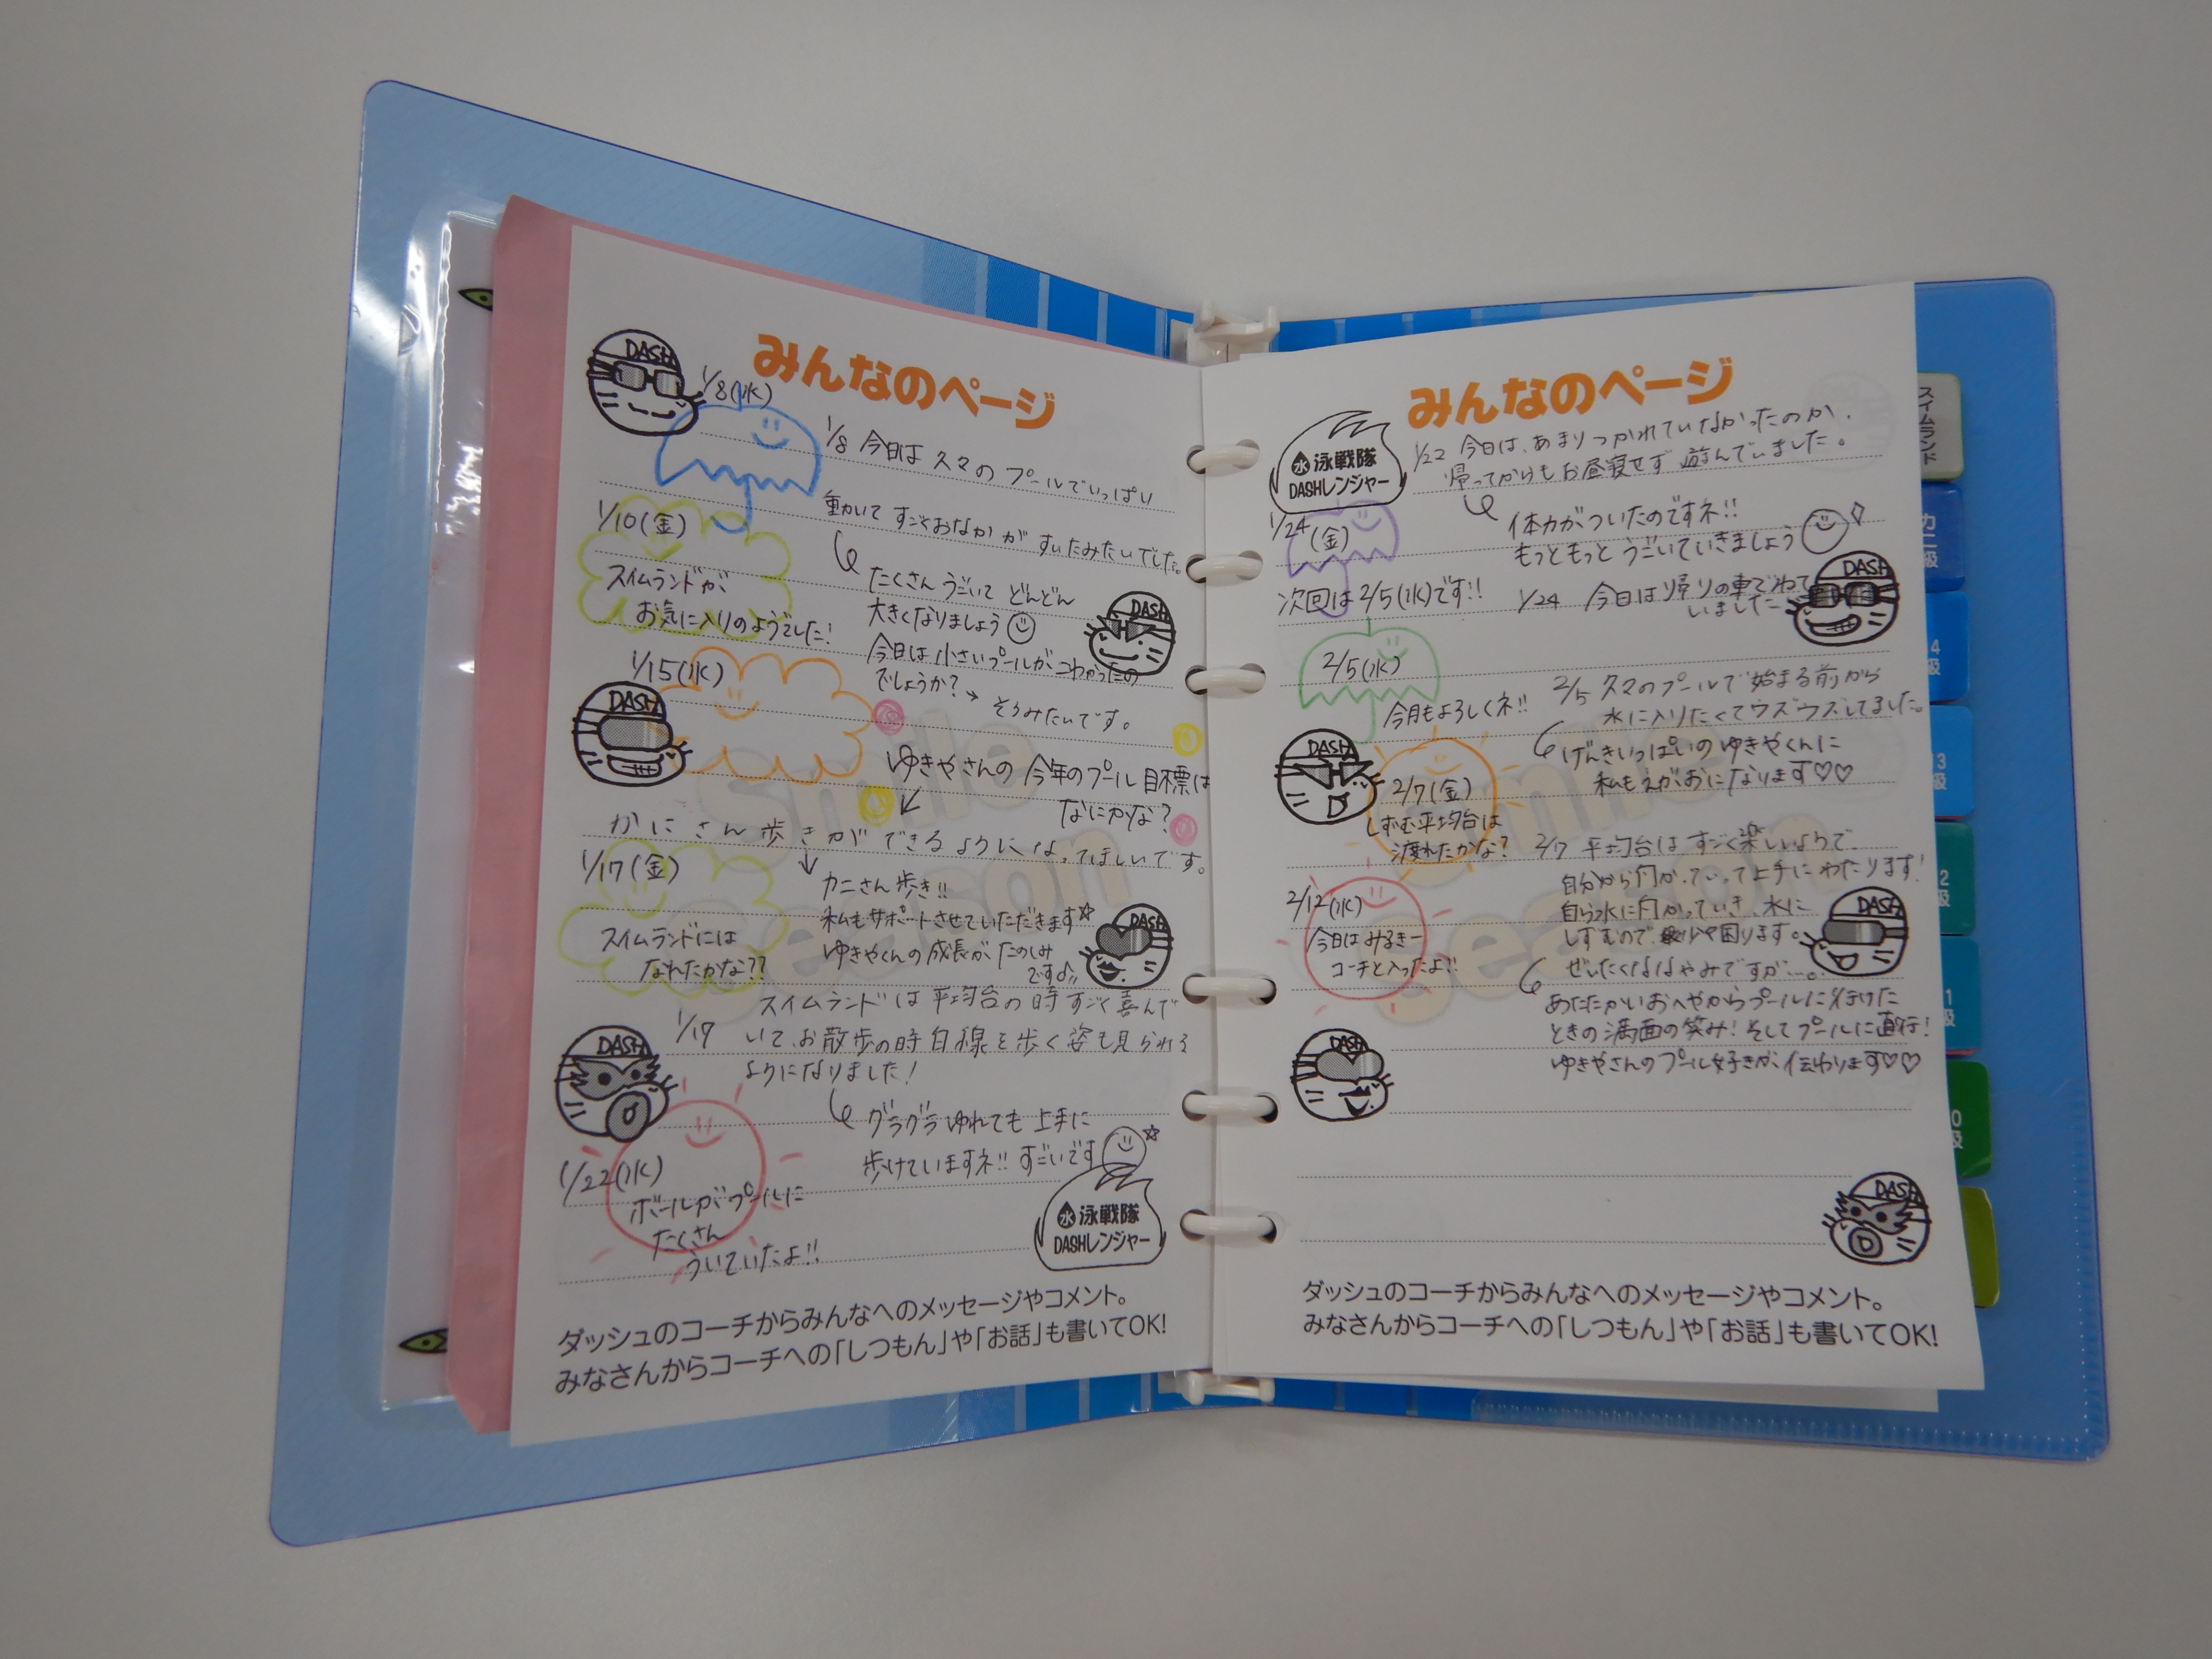 みんなのページ
1/8(水)
1/8 今日は 久々の プールでいっぱい
動いて すごくおなか が すいたみたいでした。
たくさん うごいて どんどん
大きくなりましょう
1/10(金)
スイムランドが
お気に入りのようでした!
今日は 小さいプールが こわかったの
でしょうか?→ そうみたいです。
1/15(水)
ゆきやさんの 今年のプール 目標は
なにかな?
かにさん歩きができるようになってほしいです。
カニさん 歩き!!
私もサポートさせていただきます☆
ゆきやくんの 成長が たのしみ
です♪!!
1/17(金)
スイムランドには
なれたかな??
1/17 スイムランドは 平均台の時 すごく喜んで
いて、お散歩の時 白線を歩く姿も見られる
ようになりました!
グラグラ ゆれても 上手に
歩けていますネ!! すごいです ☆
1/22(水)
ボールがプールに
たくさん
ういていたよ!!
DASH
DASH
DASH
DASH
DASH
水 泳戦隊
DASHレンジャー
ダッシュのコーチからみんなへのメッセージやコメント。
みなさんからコーチへの「しつもん」や「お話」も書いてOK!
Smile
Season
みんなのページ
水 泳戦隊
DASHレンジャー
1/22 今日は、あまりつかれていなかったのか、
帰ってからもお昼寝せず 遊んでいました。
体力がついたのですネ!!
もっともっと うごいていきましょう
1/24(金)
次回は 2/5(水)です!!
1/24 今日は 帰りの車でねて
いました
2/5(水)
今月もよろしくネ!!
2/5 久々のプールで 始まる前から
水に入りたくてウズウズしてました。
げんきいっぱいの ゆきやくんに
私もえがおになります♡♡
2/7(金)
しずむ平均台は
渡れたかな?
2/7 平均台は すごく楽しいようで、
自分から向かっていって上手に わたります!
自ら水に向かっていき、水に
しずむので、少々困ります。
ぜいたくななやみですが…。
2/12(水)
今日は みるきー
コーチと入ったよ!!
あたたかいおへやからプールに行けた
ときの 満面の笑み! そしてプールに直行!
ゆきやさんのプール好きが、伝わります♡♡
DASH
DASH
DASH
DASH
DASH
ダッシュのコーチからみんなへのメッセージやコメント。
みなさんからコーチへの「しつもん」や「お話」も書いてOK!
Smile
Season
スイムランド